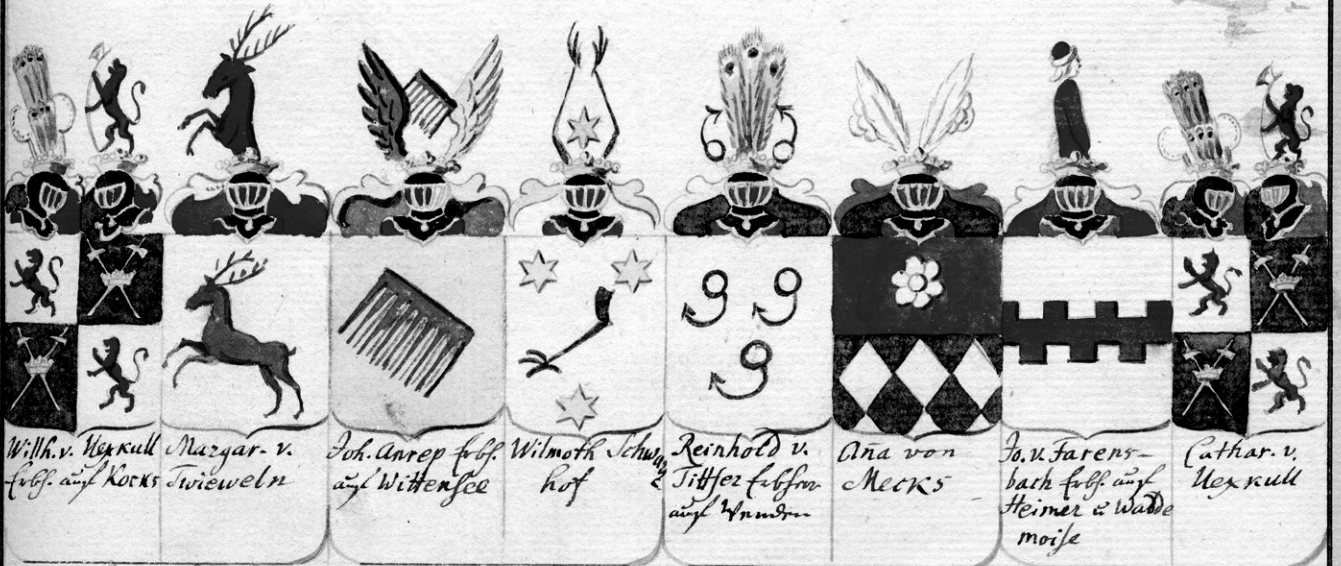 Willh. v. Uexkull
Erbh. auf Kocks
Margar. v.
Twieweln
Joh. Anrep Erbh.
auf Wittensee
Wilmoth Schwaz
hof
Reinhold v.
Tittfer Erbherr
auf Wenden
Aña von
Mecks
Jo. v. Farens-
bach Erbh. auf
Heimer u Wadde
moise
Cathar. v.
Uexkull